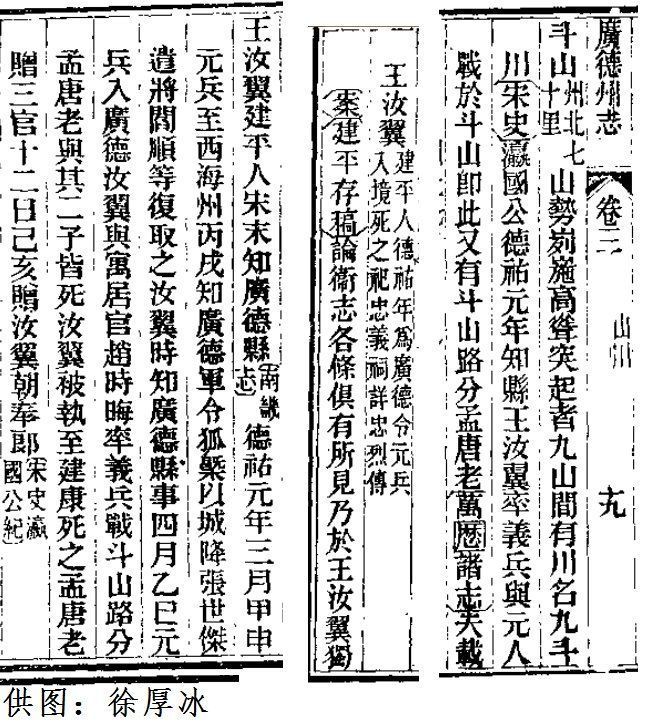 廣德州志 卷二 山川 十九
斗山州北七十里山勢峛崺高聳突起者九山間有川名九斗
川宋史瀛國公德祐元年知縣王汝翼率義兵與元人
戰於斗山即此又有斗山路分孟唐老萬歷諸志失載
王汝翼建平人德祐年爲廣德令元兵入境死之祀忠義祠詳忠烈傳
案建平存稿論衛志各條俱有所見乃於王汝翼獨
王汝翼建平人宋末知廣德縣南畿志德祐元年三月甲申
元兵至西海州丙戌知廣德軍令狐㮣以城降張世傑
遣將閻順等復取之汝翼時知廣德縣事四月乙巳元
兵入廣德汝翼與寓居官趙時晦率義兵戰斗山路分
孟唐老與其二子皆死汝翼被執至建康死之孟唐老
贈三官十二日己亥贈汝翼朝奉郎宋史瀛國公紀
供图：徐厚冰